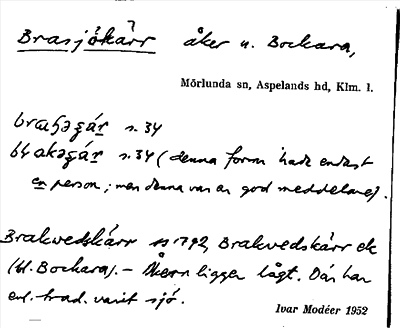 Brasjökärr åker u. Bockara,
Mörlunda sn, Aspelands hd, Klm. l.
s. 34
s. 34 (denna form hade endast
en person; men denna var en god meddelare).
Brakvedskärr 1792, Brakvedskärr ek
(bl. Bockara). – Åkern ligger lågt. Där har
enl. trad. varit sjö.
Ivar Modéer 1952